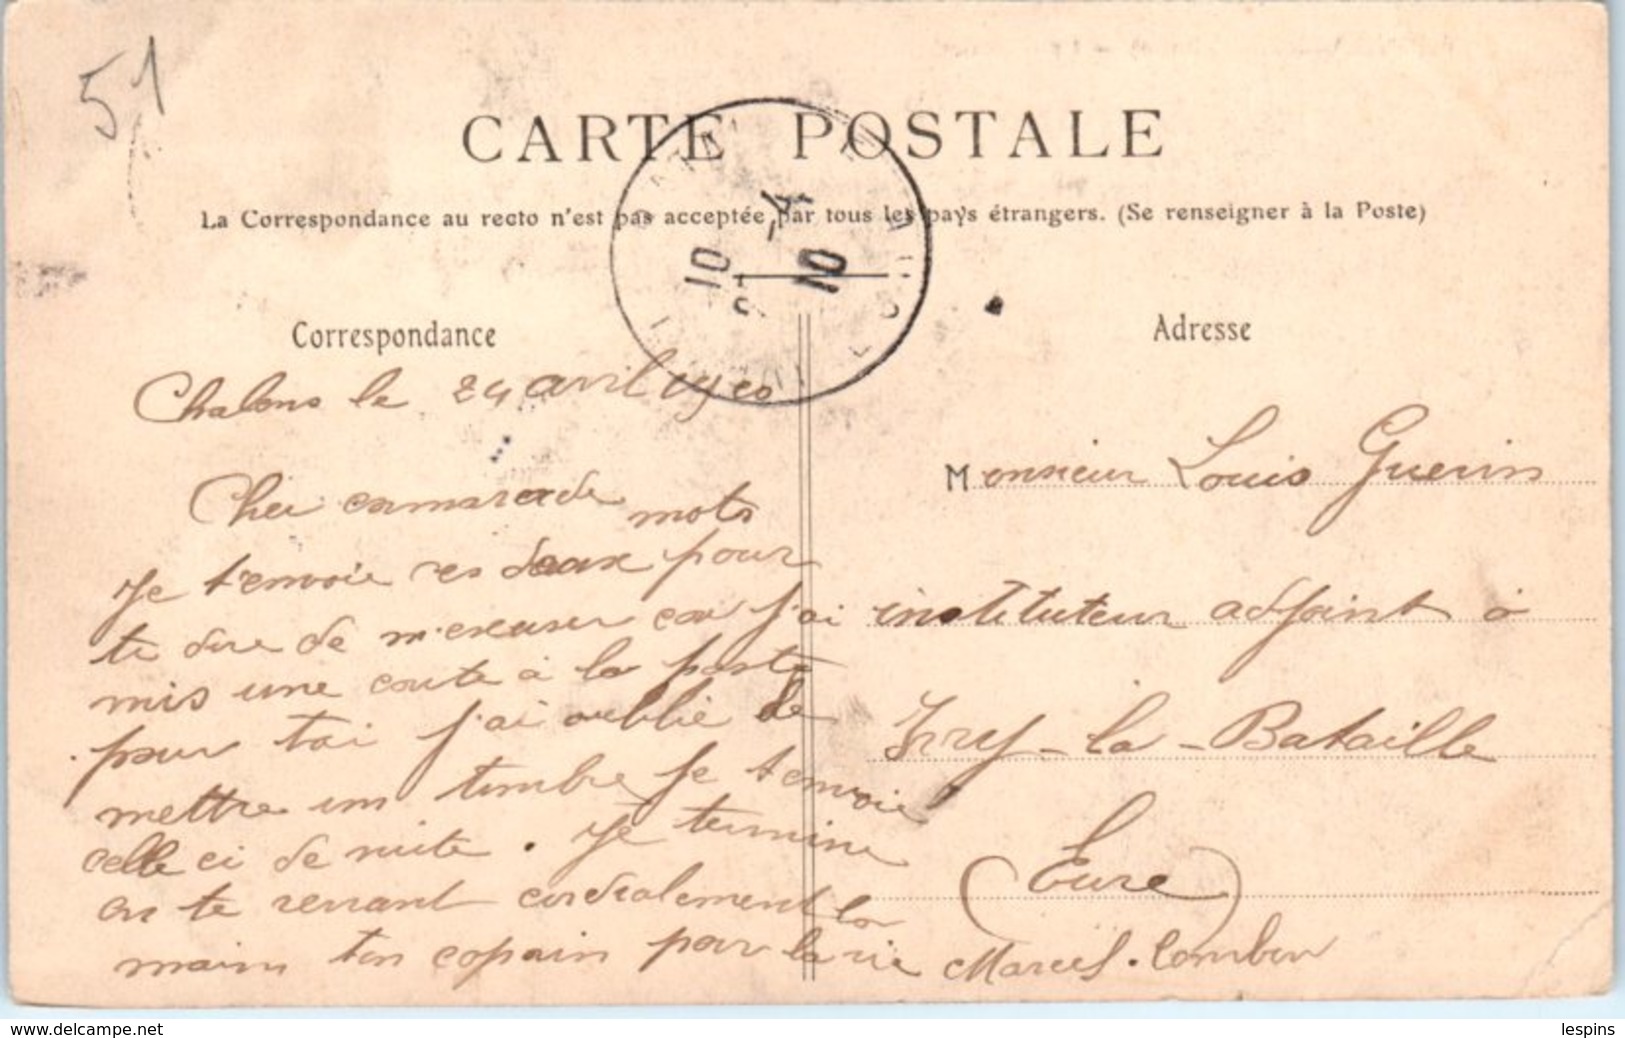 51
CARTE POSTALE
La Correspondance au recto n'est pas acceptée par tous les pays étrangers. (Se renseigner à la Poste)
10 -4
10
Correspondance
Chalons le 24 avril 1910
Cher camarade
Je t'envoie ces deux mots pour
te dire de m'excuser car j'ai
mis une carte à la poste
pour toi j'ai oublié de
mettre un timbre je t'envoie
celle ci de suite. Je termine
en te serrant cordialement la
main ton copain pour la vie Marcel
Adresse
Monsieur Louis Guerin
instituteur adjoint à
Ivry-la-Bataille
(Eure)
www.delcampe.net
lespins